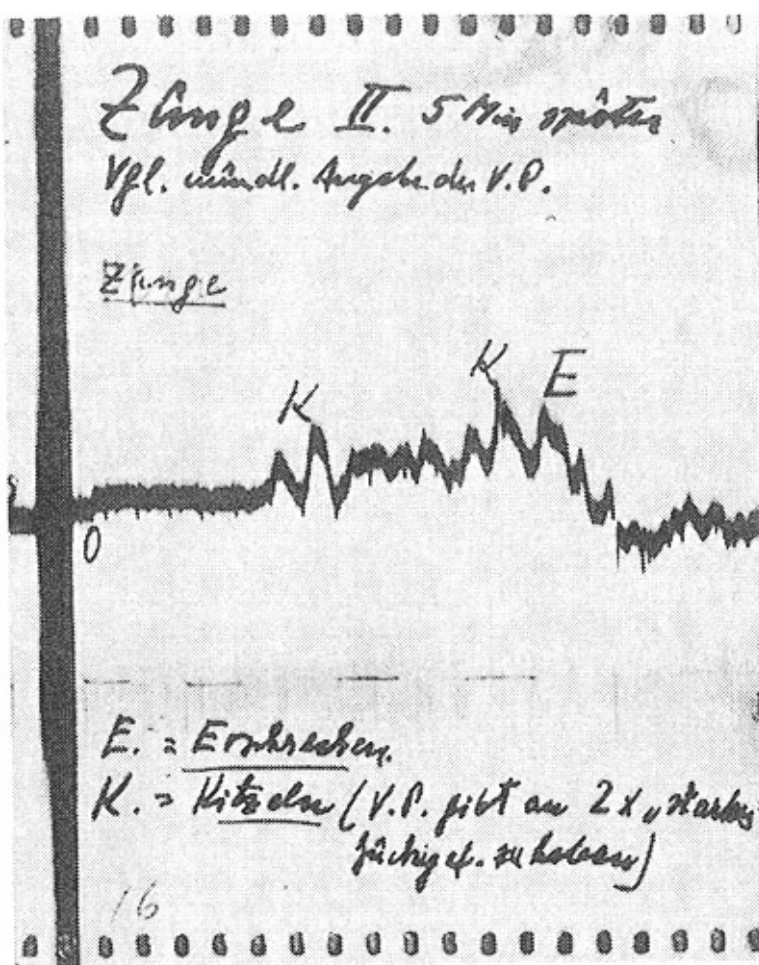 Zunge II. 5 Min später
Vgl. mündl. Angabe der V.P.
Zunge
K
K E
0
E. = Erschrecken.
K. = Kitzeln (V.P. gibt an 2x „starkes
zu haben)
16